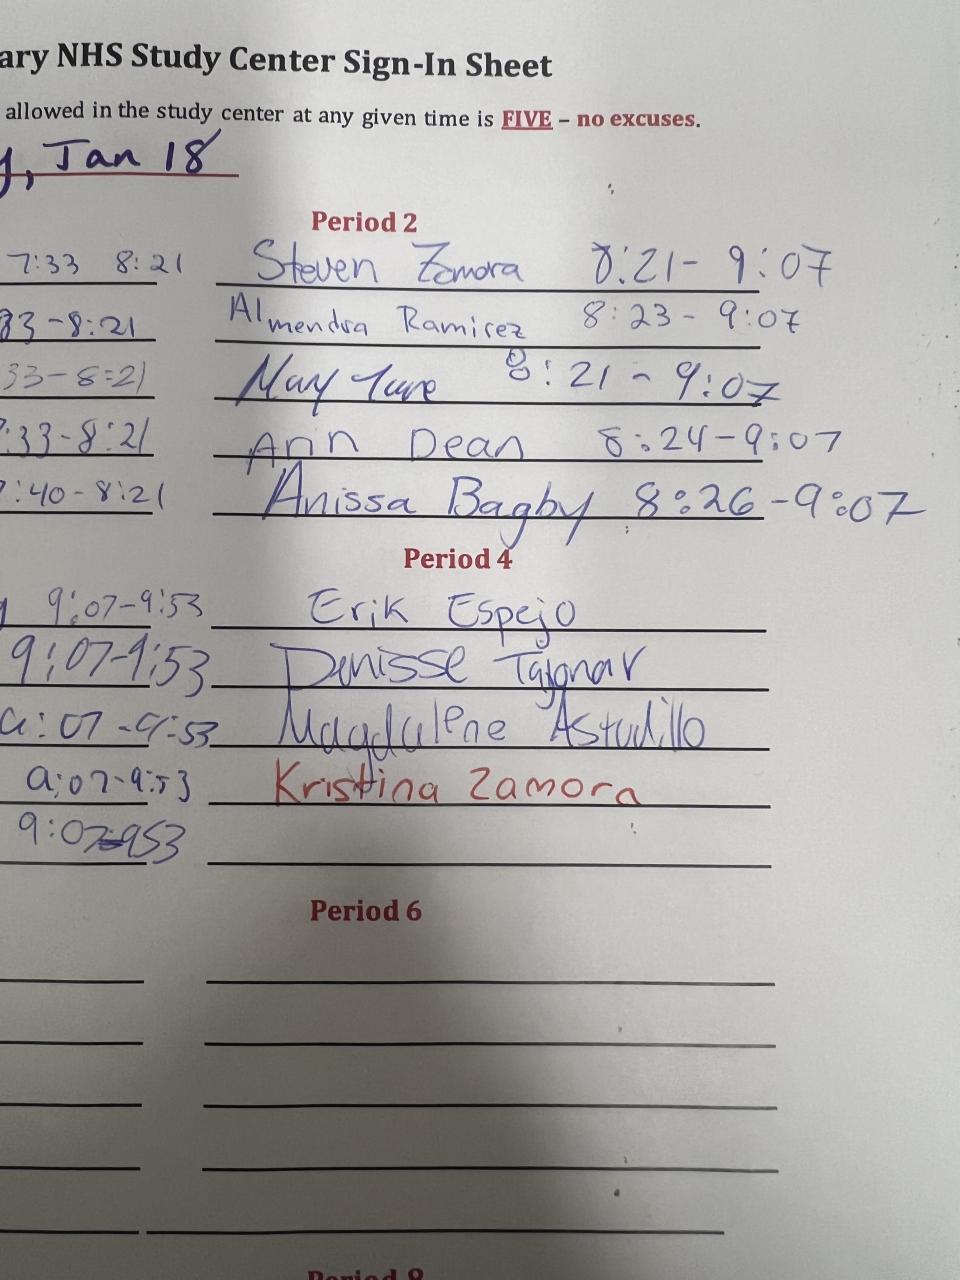 ary NHS Study Center Sign-In Sheet
allowed in the study center at any given time is FIVE – no excuses.
y, Jan 18
Period 2
7:33 8:21 Steven Zamora 8:21- 9:07
33-8:21 Almendra Ramirez 8:23- 9:07
33-8:21 May 8:21 - 9:07
:33-8:21 Ann Dean 8:24-9:07
7:40-8:21 Anissa Bagby 8:26-9:07
Period 4
9:07-9:53 Erik Espejo
9:07-9:53 Denisse Tajonar
9:07-9:53 Magdalene Astudillo
9:07-9:53 Kristina Zamora
9:07-953
Period 6
Period 8